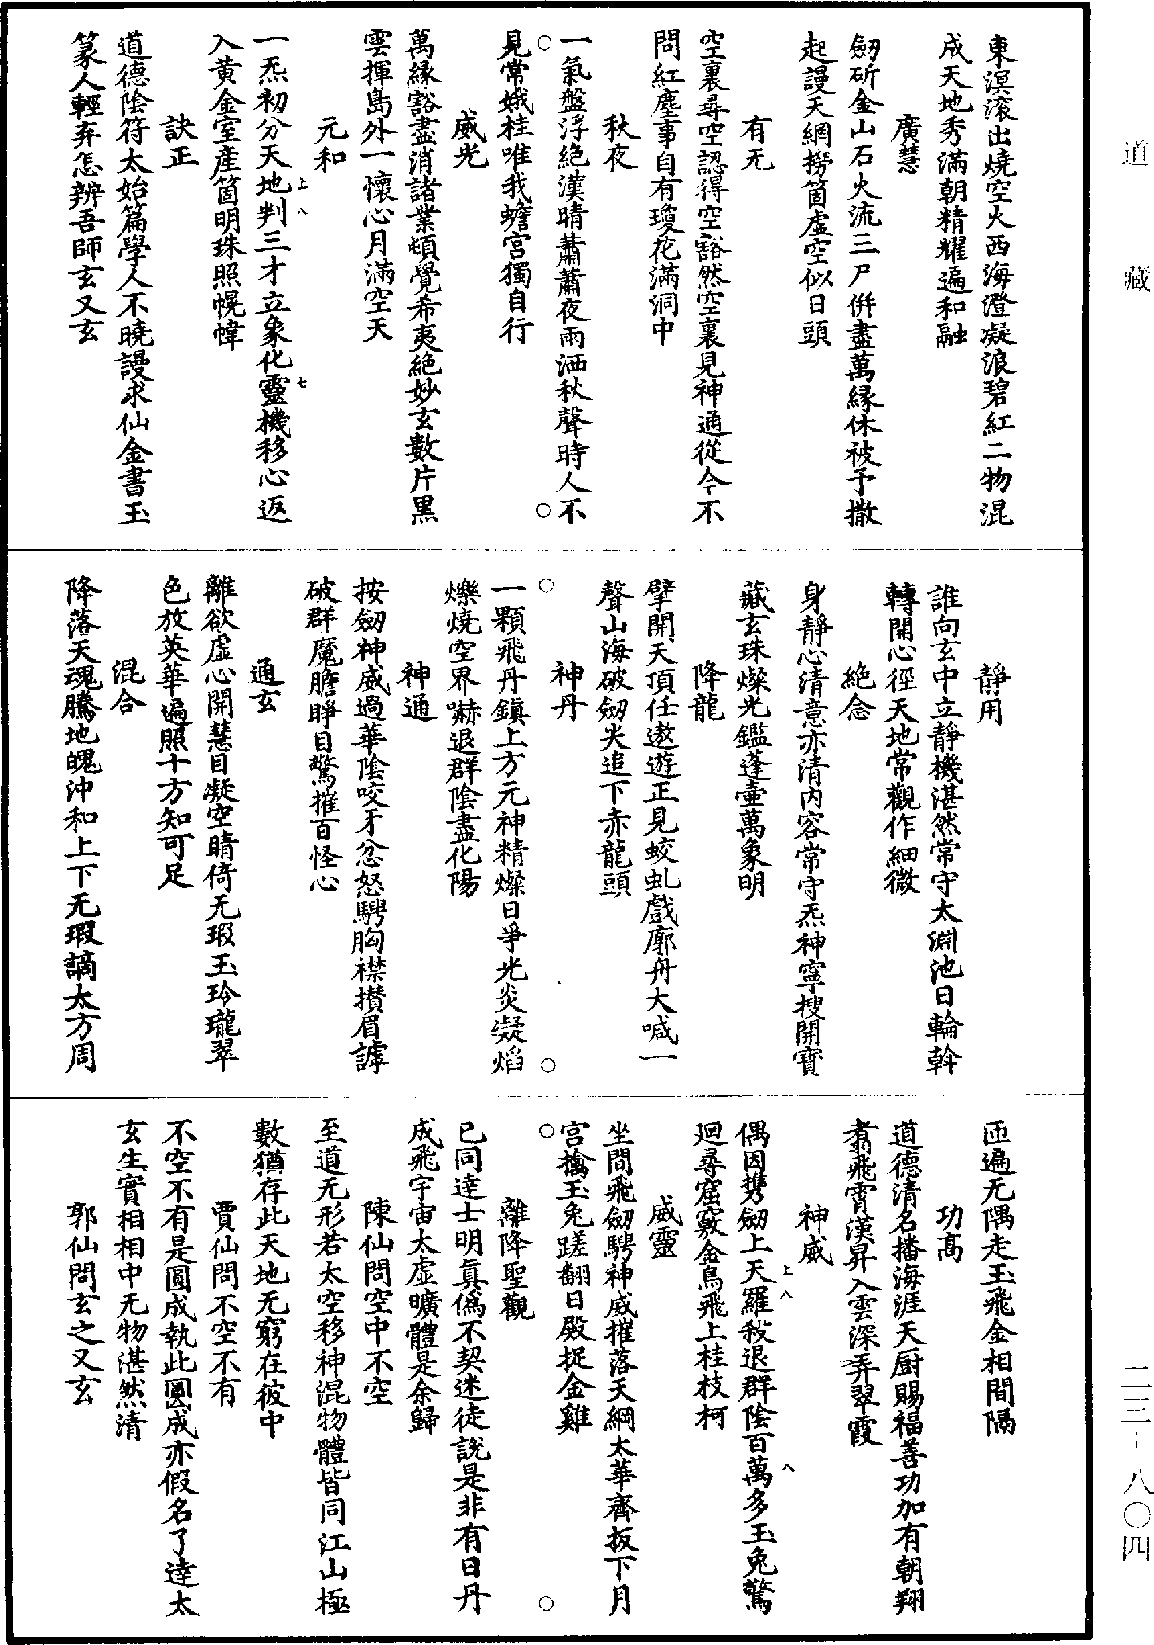 東溟滾出燒空火西海澄凝浪碧紅二物混
成天地秀滿朝精耀遍和融
廣慧
劒斫金山石火流三尸併盡萬緣休被予撒
起謾天網撈箇虛空似日頭
有无
空裏尋空認得空豁然空裏見神通從今不
問紅塵事自有瓊花滿洞中
秋夜
一氣盤浮絕漢晴蕭蕭夜雨洒秋聲時人不
見常娥桂唯我蟾宮獨自行
威光
萬緣豁盡消諸業頓覺希夷絕妙玄數片黑
雲揮島外一懷心月滿空天
元和
一炁初分天地判三才立象化靈機移心返
入黃金室産箇明珠照幌幃
訣正
道德陰符太始篇學人不曉謾求仙金書玉
篆人輕弃怎辨吾師玄又玄
上八
七
靜用
誰向玄中立靜機湛然常守太淵池日輪斡
轉開心徑天地常觀作細微
絕念
身靜心清意亦清內容常守炁神寧搜開寶
藏玄珠燦光鑑蓬壺萬象明
降龍
擘開天頂任遨遊正見蛟虬戲廓舟大喊一
聲山海破劒尖追下赤龍頭
神丹
一顆飛丹鎮上方元神精燦日爭光炎凝焰
爍燒空界嚇退群陰盡化陽
神通
按劒神威過華陰咬牙忿怒騁胸襟攢眉謼
破群魔膽睜目驚摧百怪心
通玄
離欲虛心開慧目凝空晴倚无瑕玉玲瓏翠
色放英華遍照十方知可足
混合
降落天魂騰地魄沖和上下无瑕謫太方周
匝遍无隅走玉飛金相間隔
功高
道德清名播海涯天厨賜福善功加有朝翔
翥飛霄漢昇入雲深弄翠霞
神威
偶因携劒上天羅殺退群陰百萬多玉兔驚
廻尋窟竅金烏飛上桂枝柯
威靈
坐間飛劒騁神威摧落天綱太華齊扳下月
宮擒玉兔蹉翻日殿捉金雞
離降聖觀
已同達士明真僞不契迷徒說是非有日丹
成飛宇宙太虛曠體是余歸
陳仙問空中不空
至道无形若太空移神混物體皆同江山極
數猶存此天地无窮在彼中
賈仙問不空不有
不空不有是圓成執此圓成亦假名了達太
玄生實相相中无物湛然清
郭仙問玄之又玄
上八
八
道藏
二三-八〇四